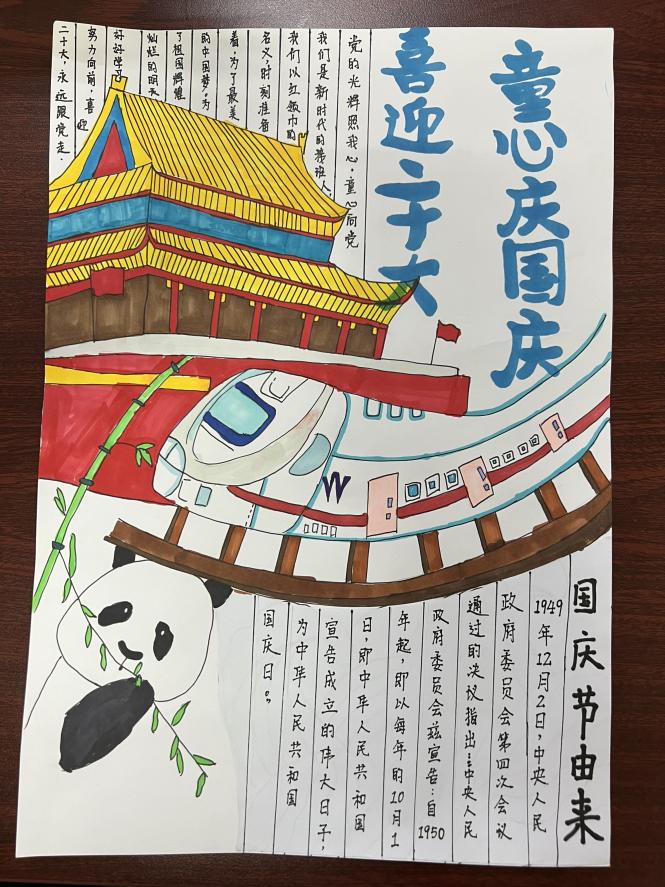 童心庆国庆
喜迎二十大
党的光辉照我心,童心向党
我们是新时代的接班人,
我们以红领巾的
名义,时刻准备
着,为了最美
的中国梦,为
了祖国辉煌
灿烂的明天
好好学习
努力向前,喜迎
二十大,永远跟党走.
W
国庆节由来
1949年12月2日,中央人民
政府委员会第四次会议
通过的决议指出:中央人民
政府委员会兹宣告:自1950
年起,即以每年的10月1
日,即中华人民共和国
宣告成立的伟大日子,
为中华人民共和国
国庆日。"